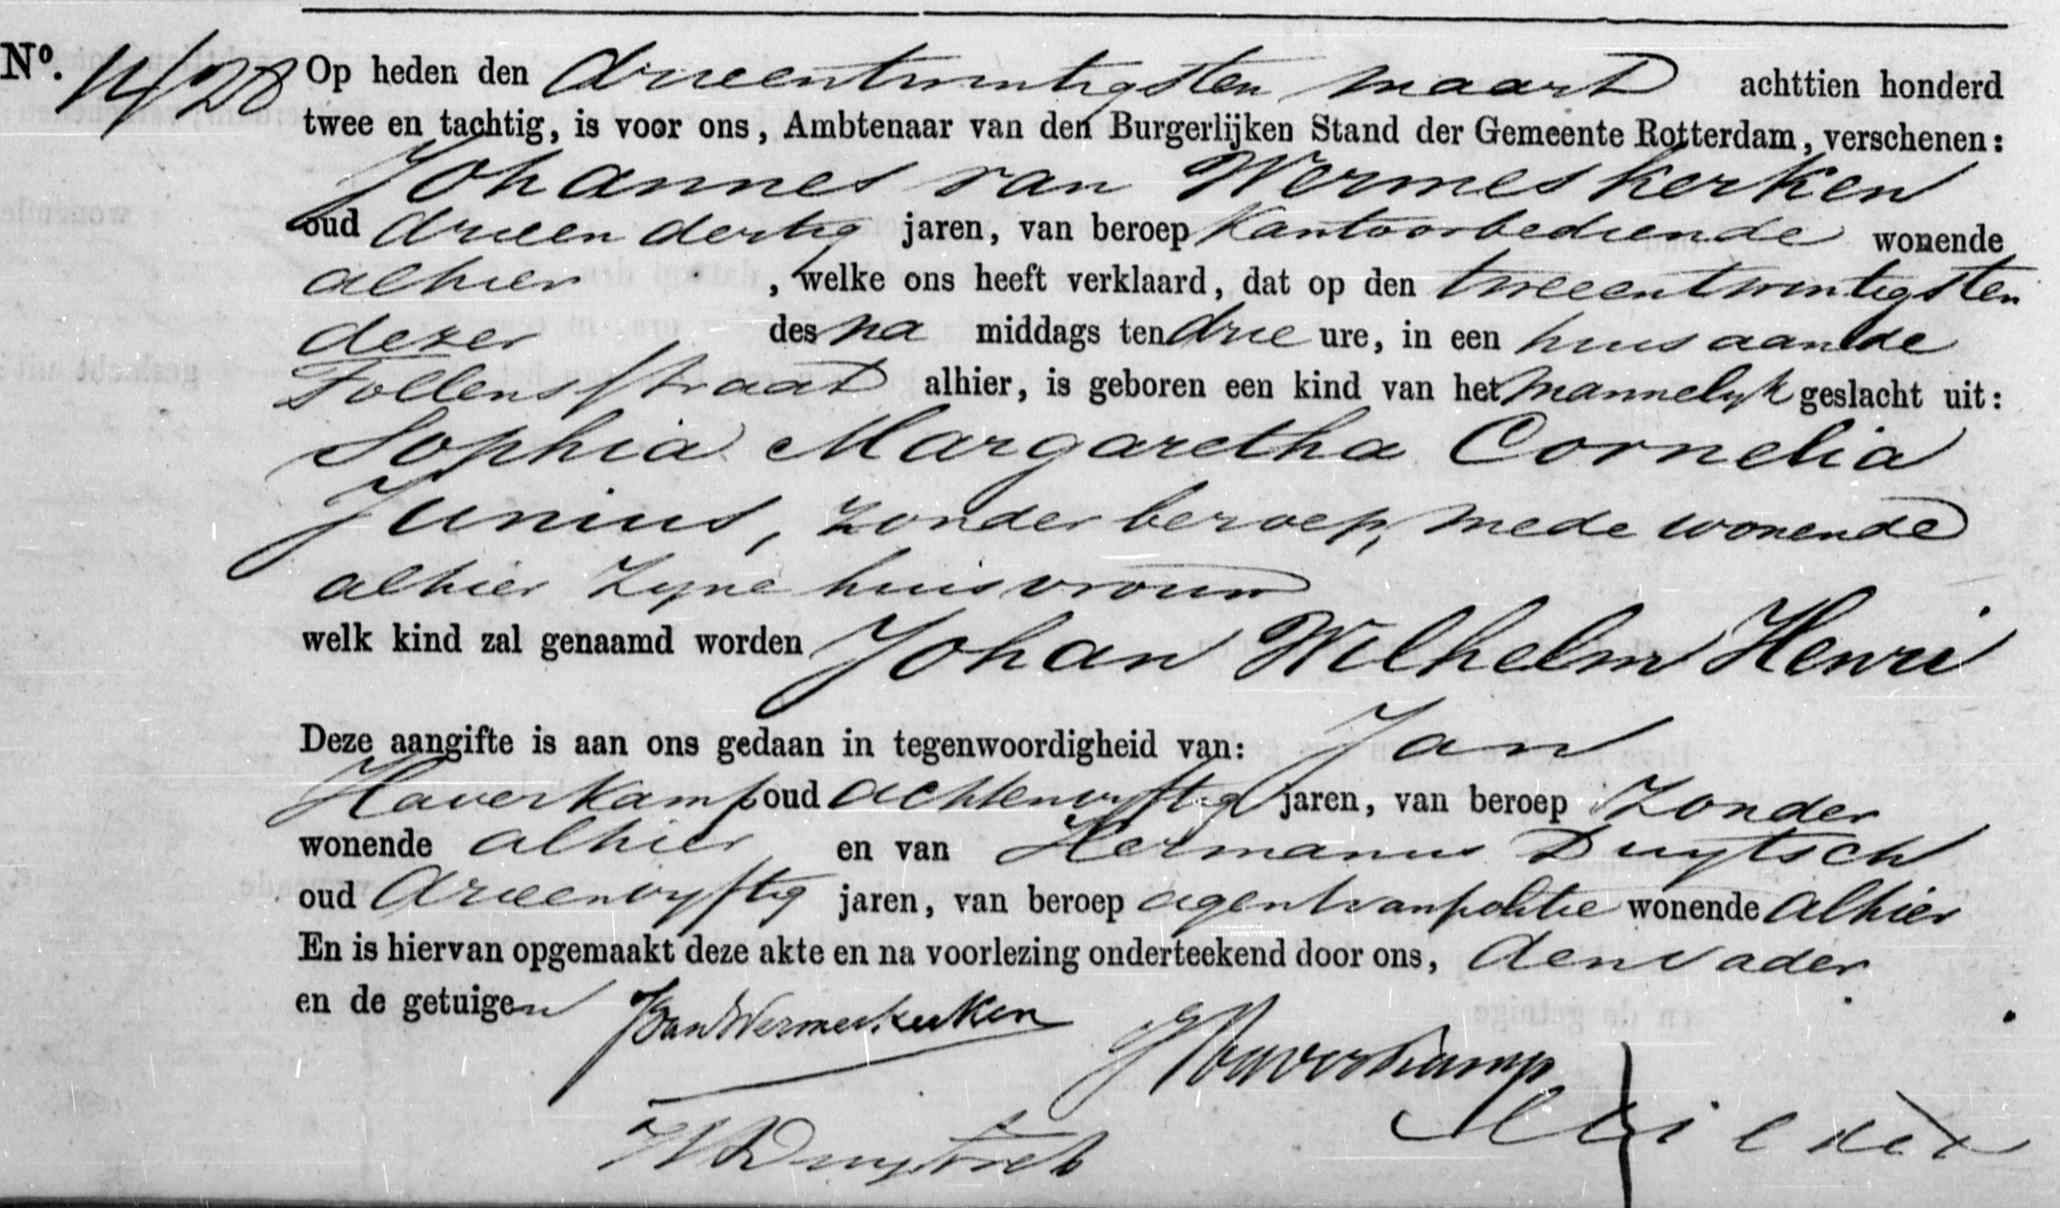 Nº. 1428 Op heden den drieentwintigsten maart achttien honderd
twee en tachtig, is voor ons, Ambtenaar van den Burgerlijken Stand der Gemeente Rotterdam, verschenen:
Johannes van Wermeskerken
oud drieen dertig jaren, van beroep Kantoorbediende wonende
alhier, welke ons heeft verklaard, dat op den tweeentwintigsten
dezer des na middags ten drie ure, in een huis aan de
Tollensstraat alhier, is geboren een kind van het mannelyk geslacht uit:
Sophia Margaretha Cornelia
Junius, zonder beroep, mede wonende
alhier zyne huisvrouw
welk kind zal genaamd worden Johan Wilhelm Henri
Deze aangifte is aan ons gedaan in tegenwoordigheid van: Jan
Haverkamp oud achtenvyftig jaren, van beroep zonder
wonende alhier en van Hermanus Duytsch
oud drieenvyftig jaren, van beroep agent van politie wonende alhier
En is hiervan opgemaakt deze akte en na voorlezing onderteekend door ons, den vader
en de getuigen JvanWermeskerken
J Haverkamp
H Duytsch